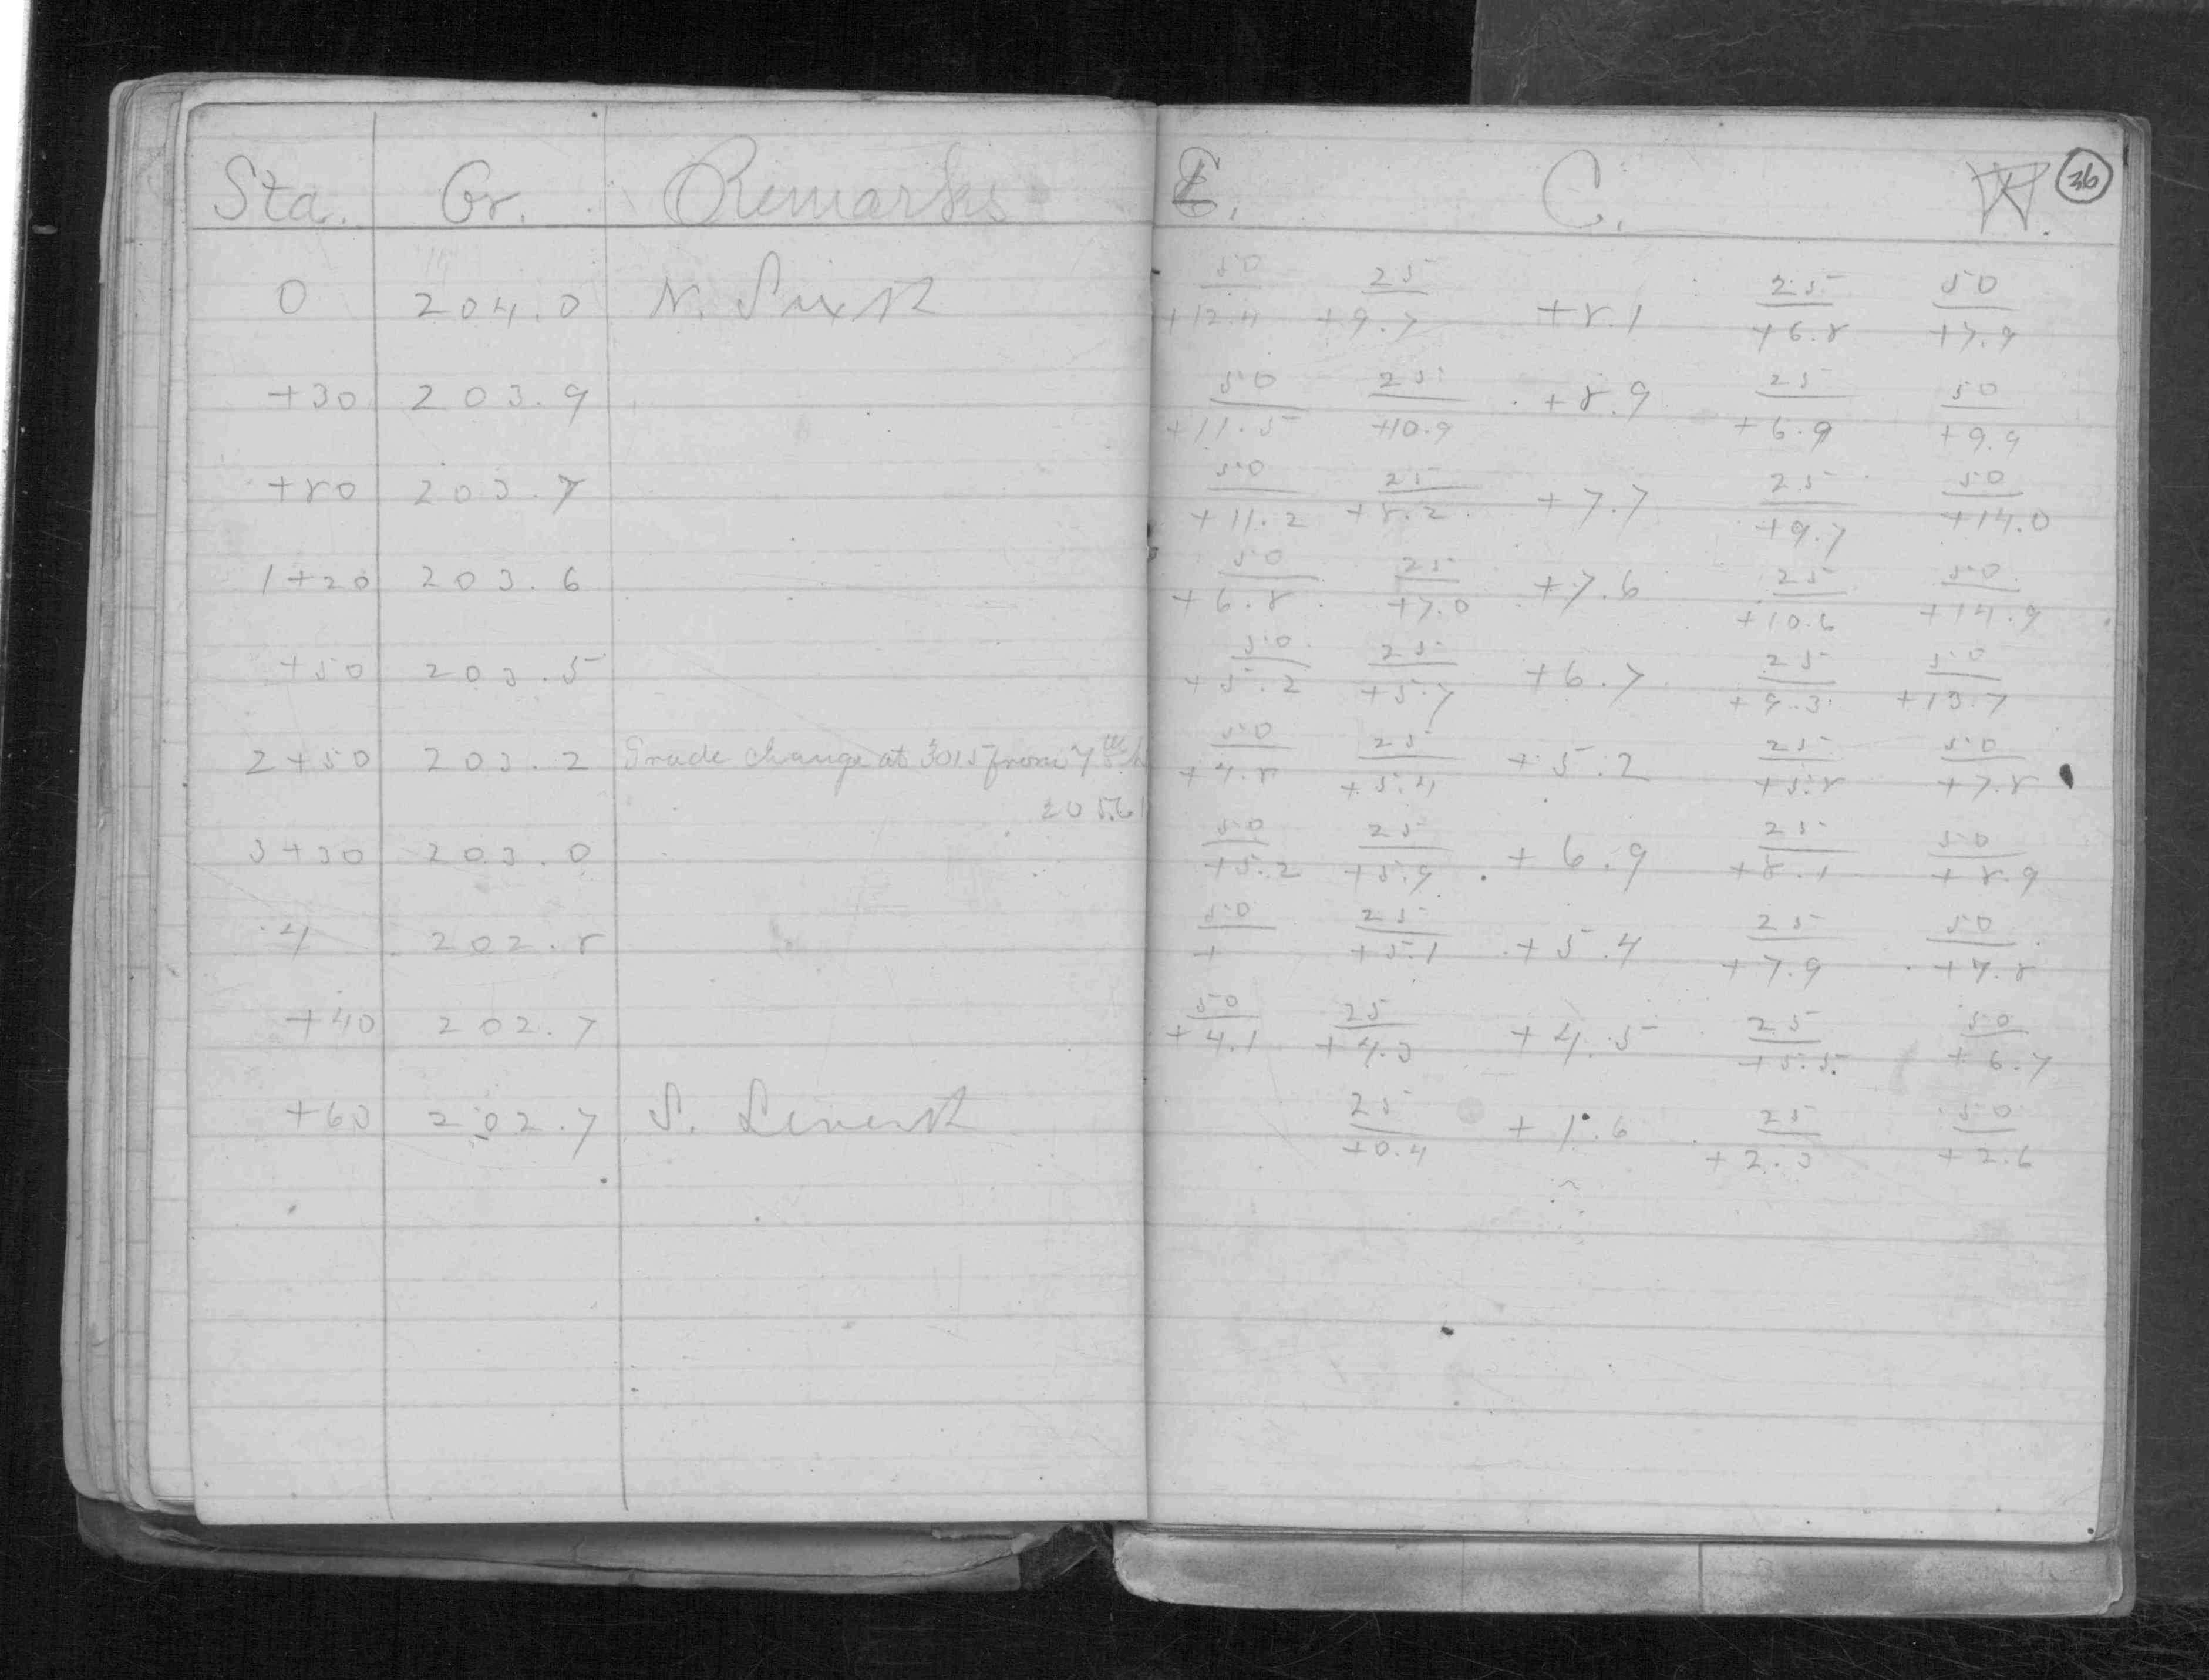 Sta. Gr. Remarks E. C. W. 36
0 204.0 N. Sixth 50/+12.4 25/+9.7 +8.1 25/+6.8 50/+7.9
+30 203.9 50/+11.5 25/+10.9 +8.9 25/+6.9 50/+9.9
+80 203.7 50/+11.2 25/+8.2 +7.7 25/+9.7 50/+14.0
1+20 203.6 50/+6.8 25/+7.0 +7.6 25/+10.6 50/+14.9
+50 203.5 50/+5.2 25/+5.7 +6.7 25/+9.3 50/+13.7
2+50 203.2 Grade change at 3015 from 7th 50/+4.8 25/+5.4 +5.2 25/+5.8 50/+7.8
205.61
3+30 203.0 50/+5.2 25/+5.9 +6.9 25/+8.1 50/+8.9
4 202.8 50/+ 25/+5.1 +5.4 25/+7.9 50/+7.8
+40 202.7 50/+4.1 25/+4.3 +4.5 25/+5.5 50/+6.7
+60 202.7 S. Seventh 25/+0.4 +1.6 25/+2.3 50/+2.6